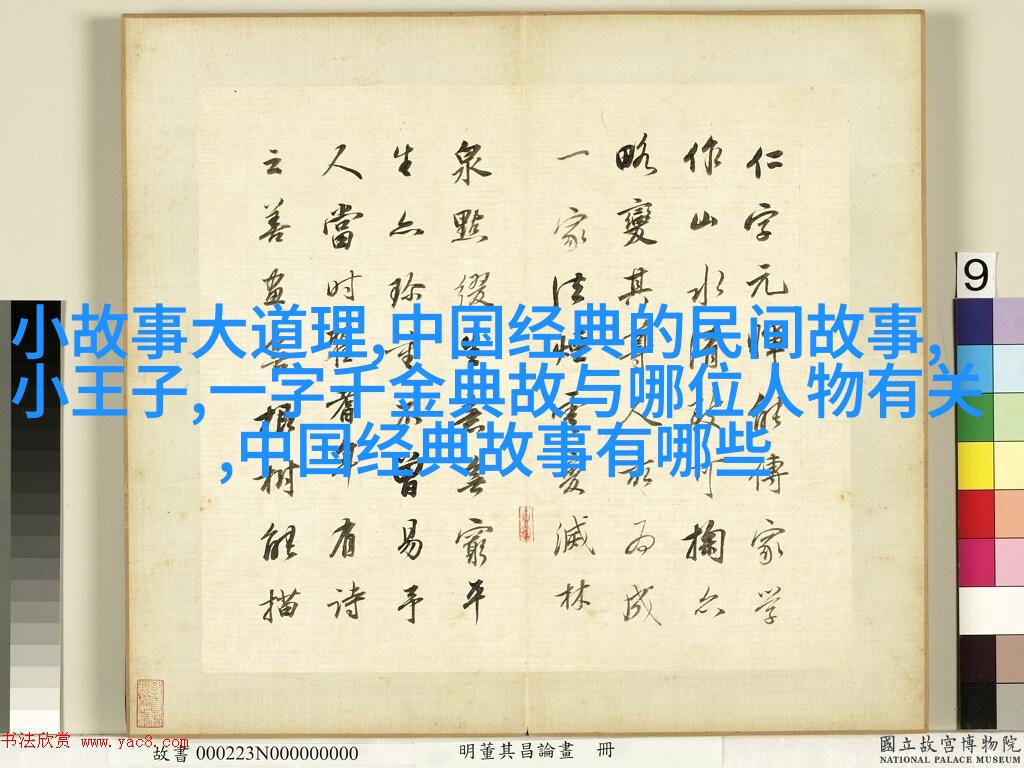 小故事大道理,中国经典的民间故事,
小王子,一字千金典故与哪位人物有关
,中国经典故事有哪些
仁字元暉能傳家学
作山水清致可掬亦
略變其尊人所为成
一家法烟雲變滅林
泉點綴生意無窮平
生亦珍重不曾易予
人當时翟耆年有诗
云善畫無根樹能描
9
书法欣赏 www.yac8.com
故書 000223N000000000
明董其昌論畫 冊
國立故宮博物院
NATIONAL PALACE MUSEUM